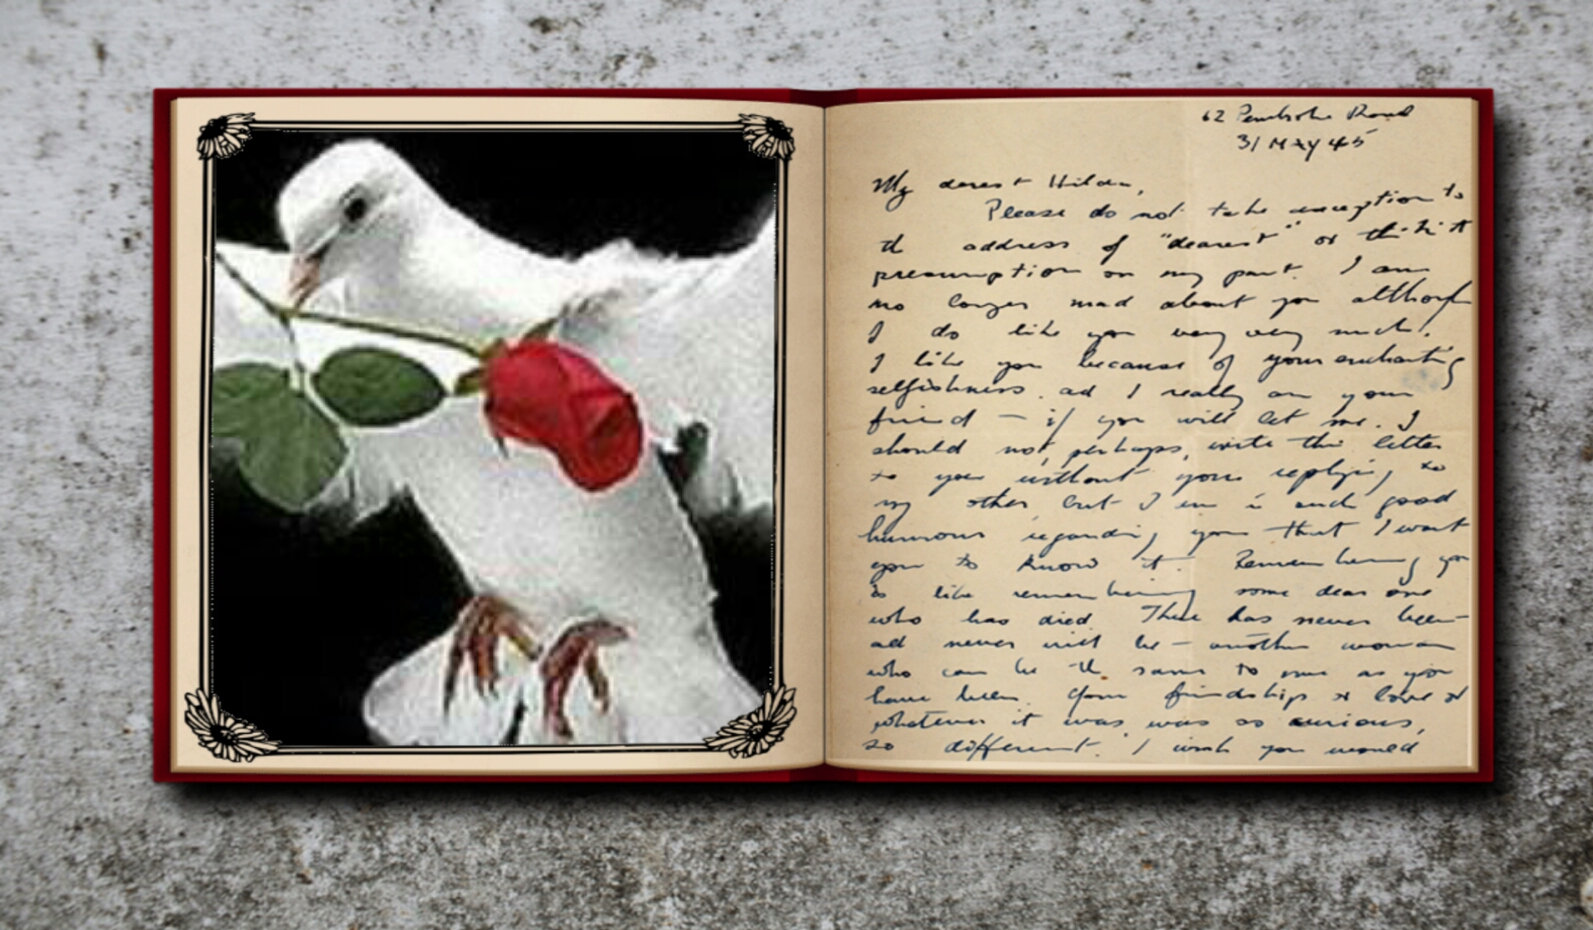 62 Pembroke Road
31 MAY 45
My dearest Hilda,
Please do not take exception to
the address of "dearest" or think it
presumption on my part. I am
no longer mad about you although
I do like you very very much.
I like you because of your enchanting
selfishness and I really am your
friend — if you will let me. I
should not, perhaps, write this letter
to you without your replying to
my other but I am in such good
humour regarding you that I want
you to know it. Remembering you
is like remembering some dear one
who has died. There has never been
and never will be — another woman
who can be the same to me as you
have been. Your friendship & love &
whatever it was was so curious,
so different. I wish you would